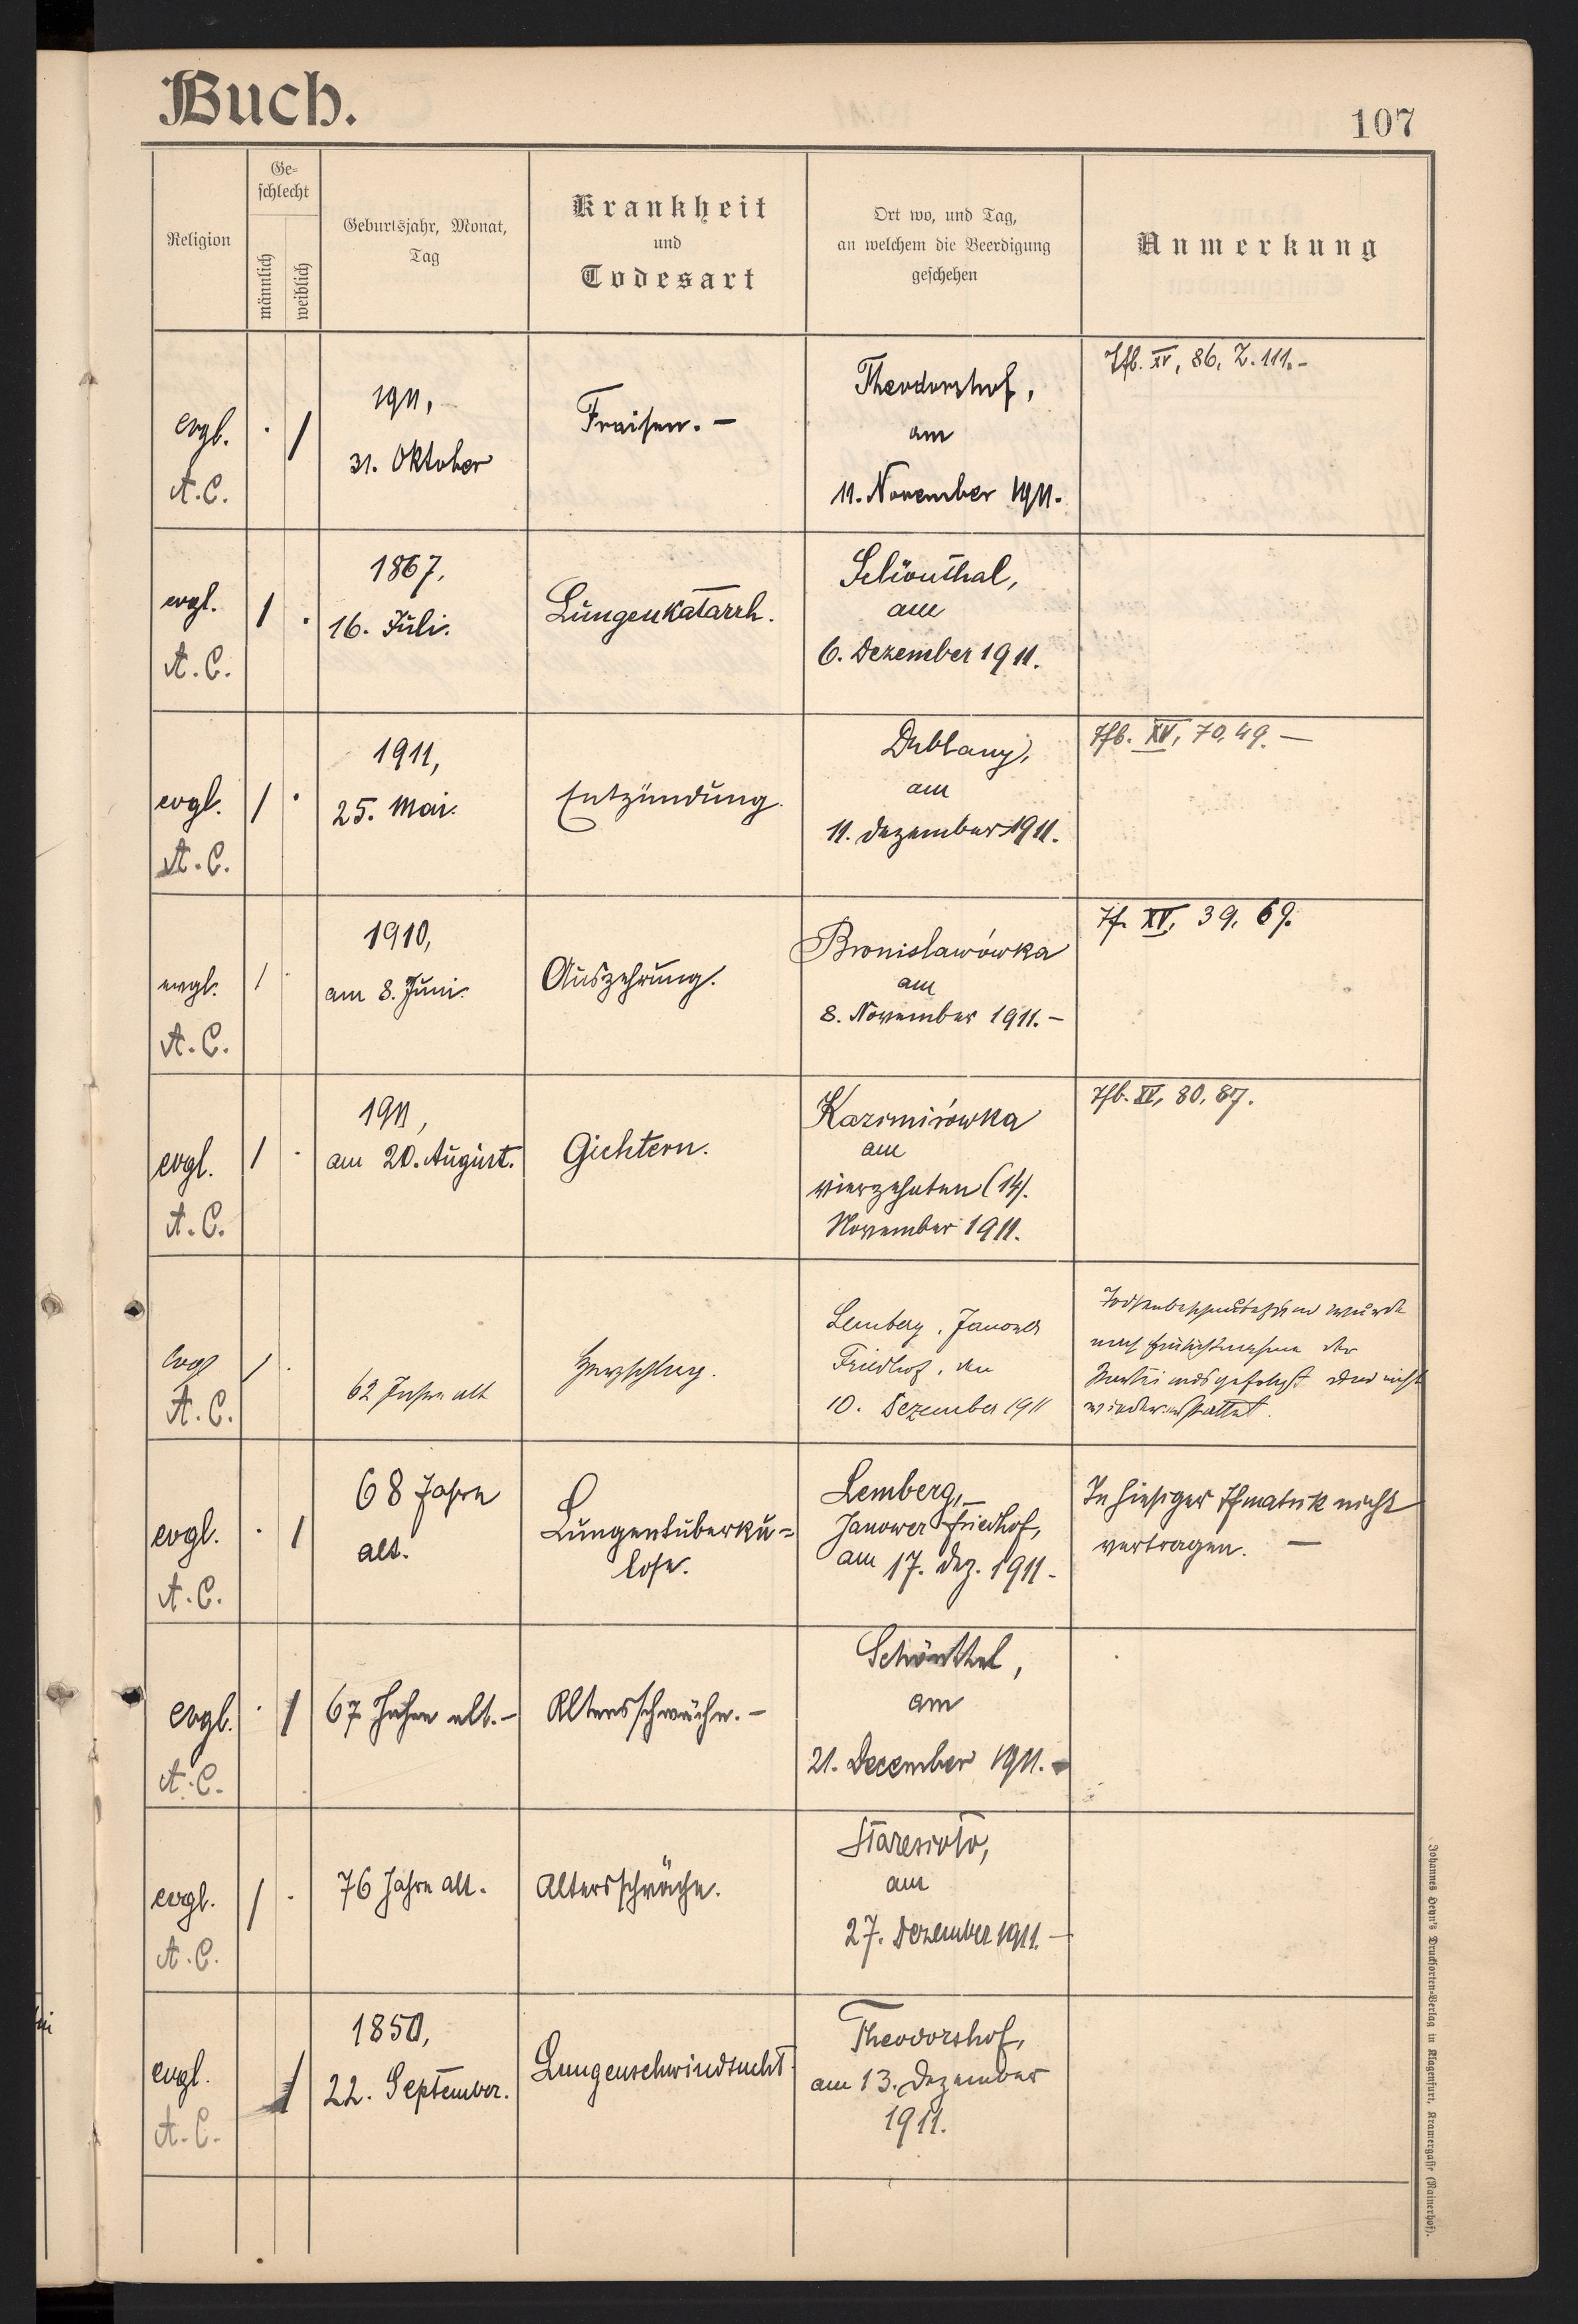 Buch.
107
Religion
Ge-
schlecht
männlich
weiblich
Geburtsjahr, Monat,
Tag
Krankheit
und
Todesart
Ort wo, und Tag,
an welchem die Beerdigung
geschehen
Anmerkung
evgl.
A. C.
. /
1911,
31. Oktober
Fraisen. –
Theodorshof,
am
11. November 1911.
Tfb. XV, 86, Z. 111. –
evgl.
A. C.
/ .
1867,
16. Juli.
Lungenkatarrh.
Schönthal,
am
6. Dezember 1911.
evgl.
A. C.
/ .
1911,
25. Mai.
Entzündung.
Dublany,
am
11. Dezember 1911.
Tfb. XV, 70, 49. –
evgl.
A. C.
/ .
1910,
am 8. Juni.
Auszehrung.
Bronislawówka
am
8. November 1911. –
Tf. XV, 39, 69.
evgl.
A. C.
/ .
1911,
am 20. August.
Gichtern.
Kazimirówka
am
vierzehnten (14).
November 1911.
Tfb. XV, 80, 87.
evgl
A. C.
/ .
62 Jahre alt
Herzschlag.
Lemberg, Janower
Friedhof, den
10. Dezember 1911
wurde
nach der
Partei und nicht
evgl.
A. C.
. /
68 Jahre
alt.
Lungentuberku-
lose.
Lemberg, –
Janower Friedhof,
am 17. Dez. 1911 –
In hiesiger Tfmatrik nicht
vertragen. –
evgl.
A. C.
. /
67 Jahre alt. –
Altersschwäche. –
Schönthal,
am
21. December 1911. –
evgl.
A. C.
/ .
76 Jahre alt.
Altersschwäche.
Staresioło,
am
27. Dezember 1911. –
evgl.
A. C.
/
1850,
22. September.
Lungenschwindsucht.
Theodorshof,
am 13. Dezember
1911.
Johannes Heyn's Drucksorten-Verlag in Klagenfurt, Kramergasse (Rainerhof).